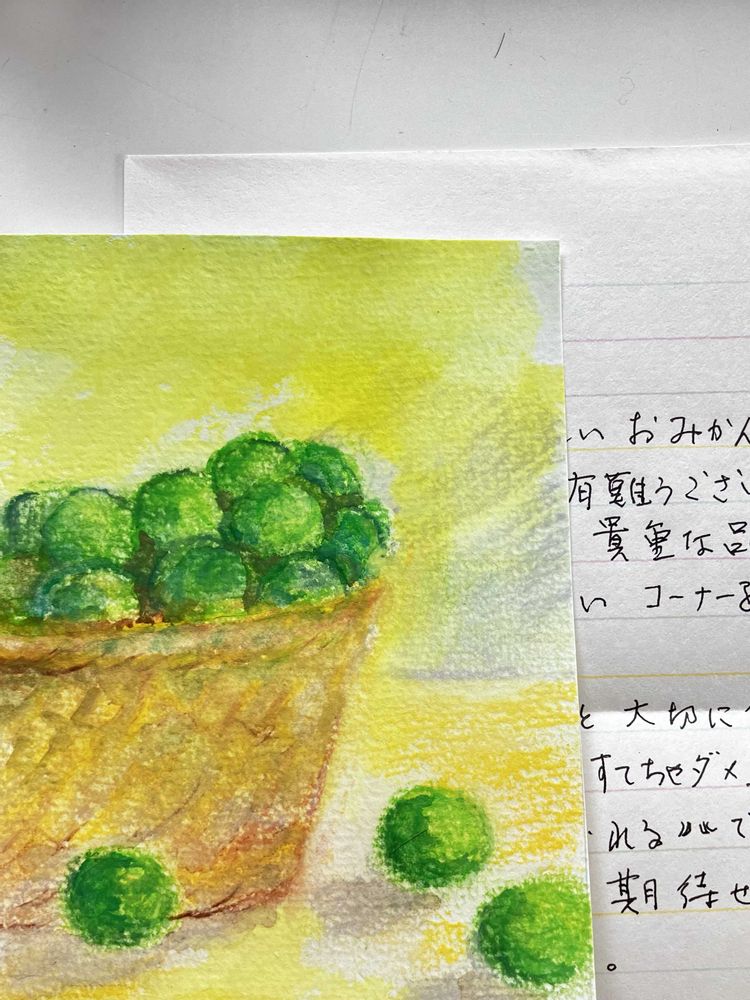 い おみかん
有難うござい
貴重な品
い コーナーを
と 大切に
すてちゃダメ
れる""で
期待せ
。